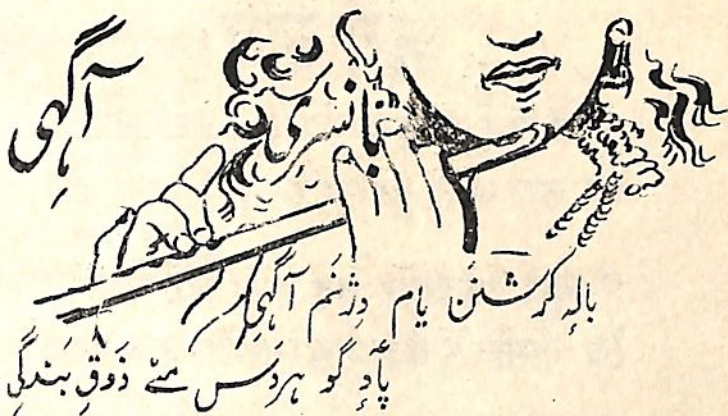 آگہی
بانسری
بالہٕ کرشنَن یام دِژنَم آگہی
پٲدٕ گو ہردَس منٛے ذَوقِ بَندگی